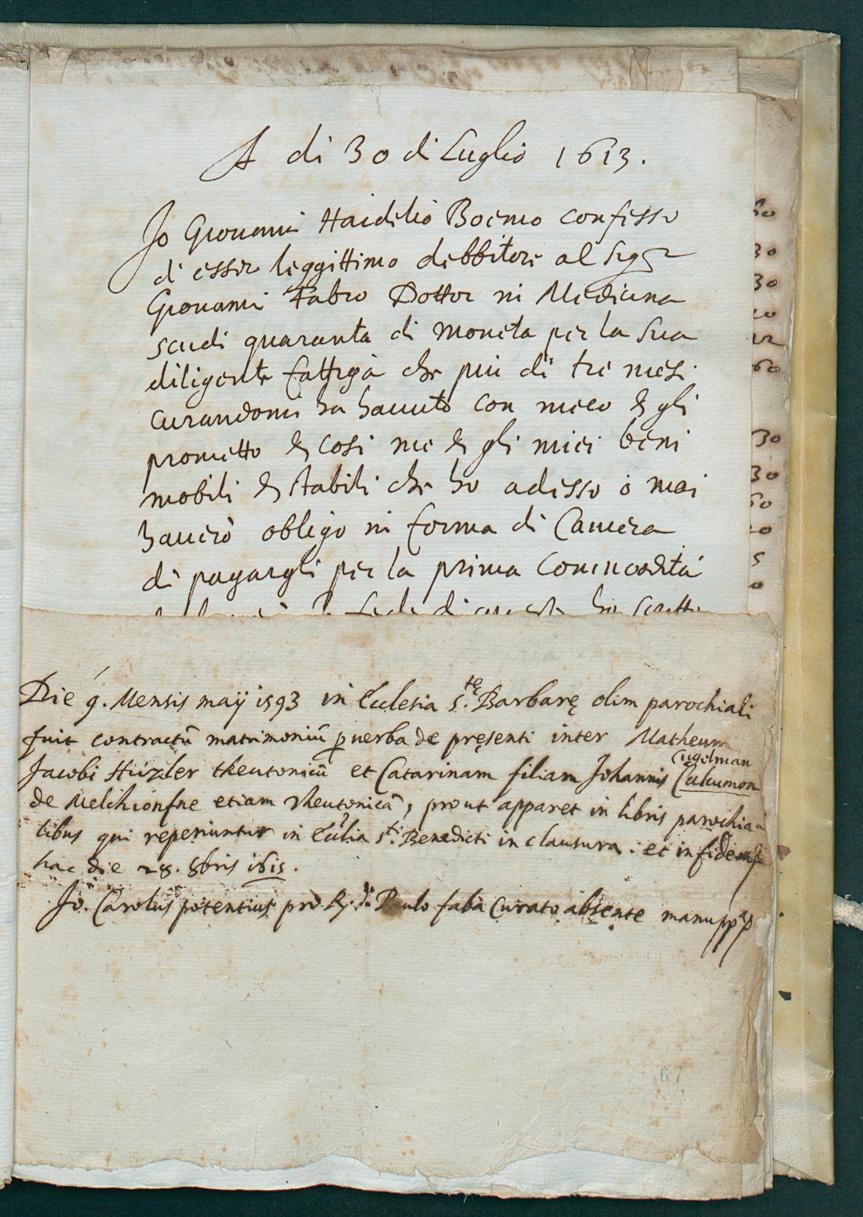 A di 30 di Luglio 1613.
Jo Giouanni Haidelio Boemo confesso
di esser leggittimo debbitore al Sigr
Giouanni Fabro Dottor in Medicina
scudi quaranta di moneta per la sua
diligente fattiga che piu di tre mesi
curandomi ha hauuto con meco & gli
prometto & cosi me & gli miei beni
mobili & stabili che ho adesso o mai
hauerò obligo in forma di Camera
di pagargli per la prima Commodità
fede di questa ho scritto
Die 9. Mensis maÿ 1593 in Ecclesia S.te Barbarę olim parochiali
fuit contractũ matrimoniũ p uerba de pręsenti inter Matheum
Cugelman
Jacobi Hüzler theutonicũ et Catarinam filiam Johannis
de Melchionfne etiam theutonicã, prout apparet in libris parochia
tibus qui reperiuntur in Ecclia S.ti Benedicti in clausura. et in fidem
hac die 28. 8bris 1615.
Jo. Carolus potentius pro R.do d. Paulo faba Curato absente manu pp
60
30
30
60
30
30
60
5